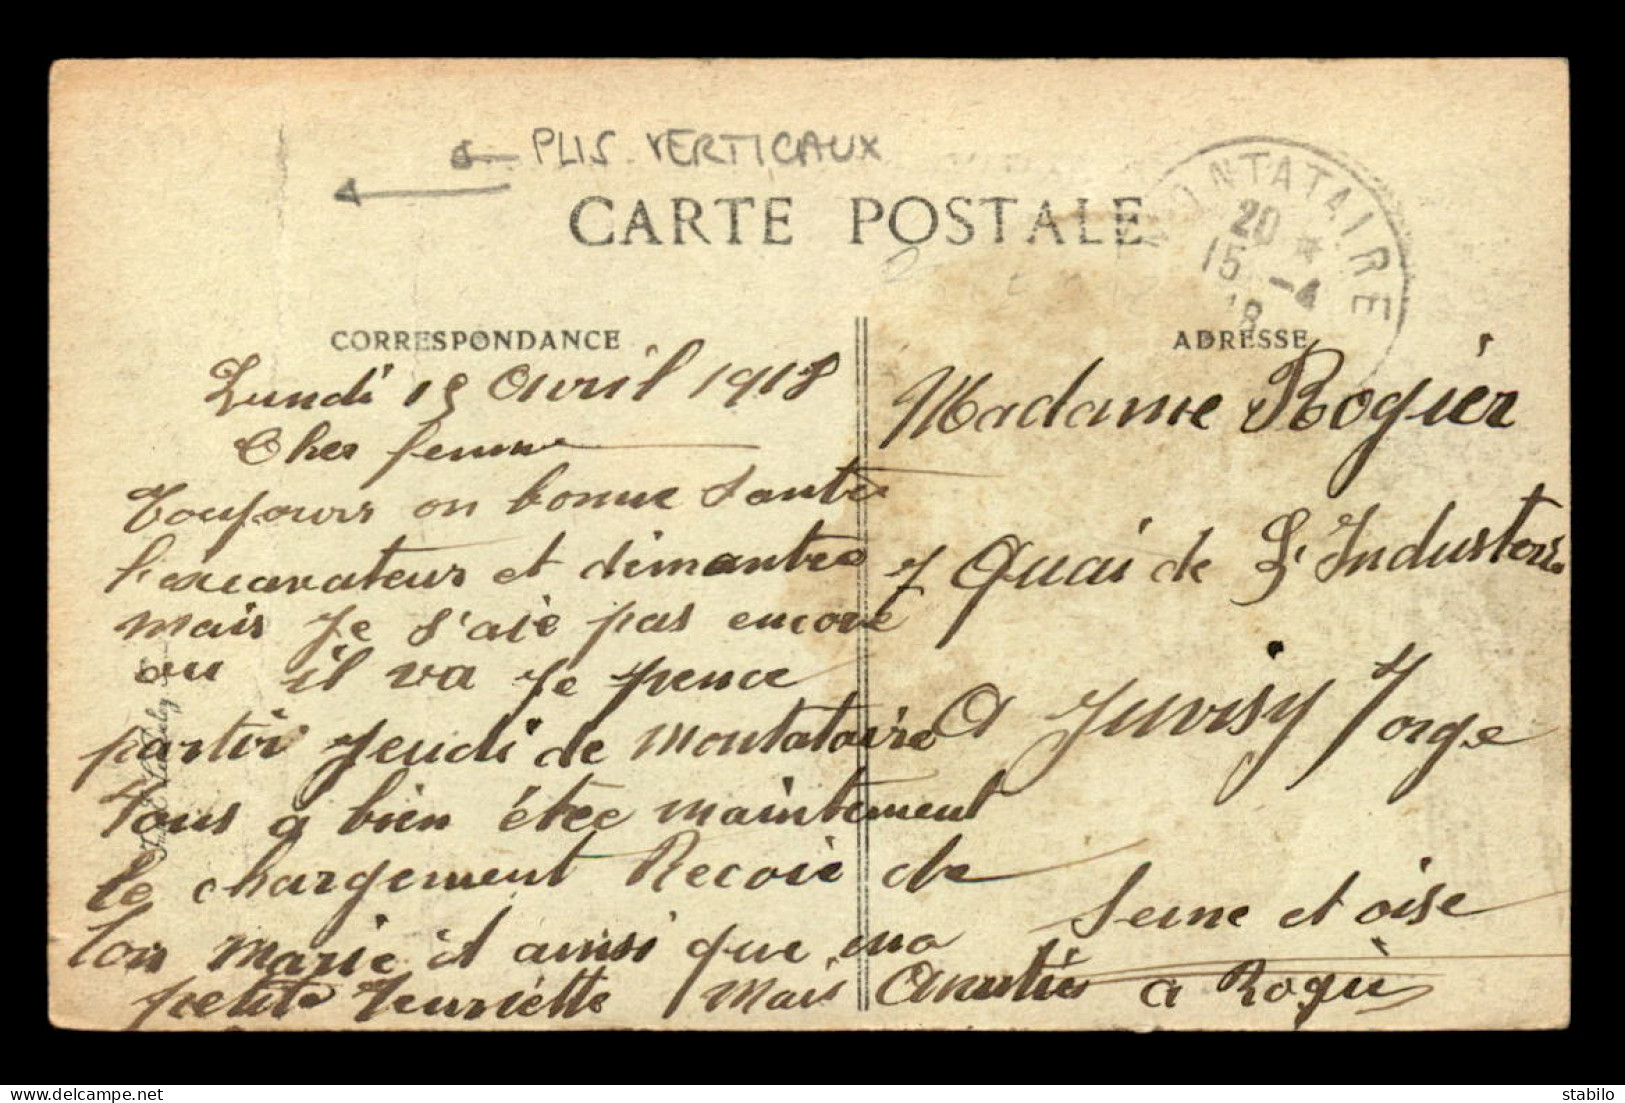 PLIS VERTICAUX
CARTE POSTALE
MONTATAIRE
20 *
15 -4
18
CORRESPONDANCE
Lundi 15 Avril 1918
Cher femme
Toujours on bonne Santée
l'excavateur et dimantee
mais Je s'aie pas encore
ou il va Je pence
partir Jeudi de Montataire
Tous a bien étée maintement
le chargement Recoie de
ton Marie et ainsi que ma
petite Henriette Mais Amitiés a Rogie
ADRESSE
Madame Rogier
7 Quai de L'Industers
A Juvisy S/orge
Seine et oise
stabilo